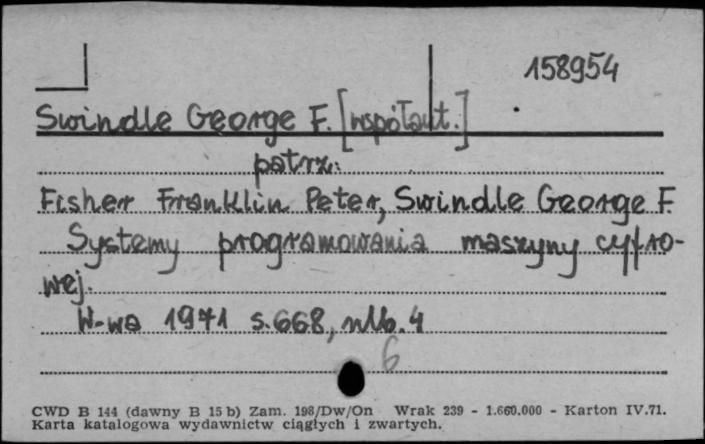 158954
Swindle George F. [współaut.]
patrz:
Fisher Franklin Peter, Swindle George F.
Systemy programowania maszyny cyfro-
wej.
W-wa 1971 s. 668, nlb. 4
6
CWD B 144 (dawny B 15 b) Zam. 198/Dw/On Wrak 239 - 1.660.000 - Karton IV.71.
Karta katalogowa wydawnictw ciągłych i zwartych.